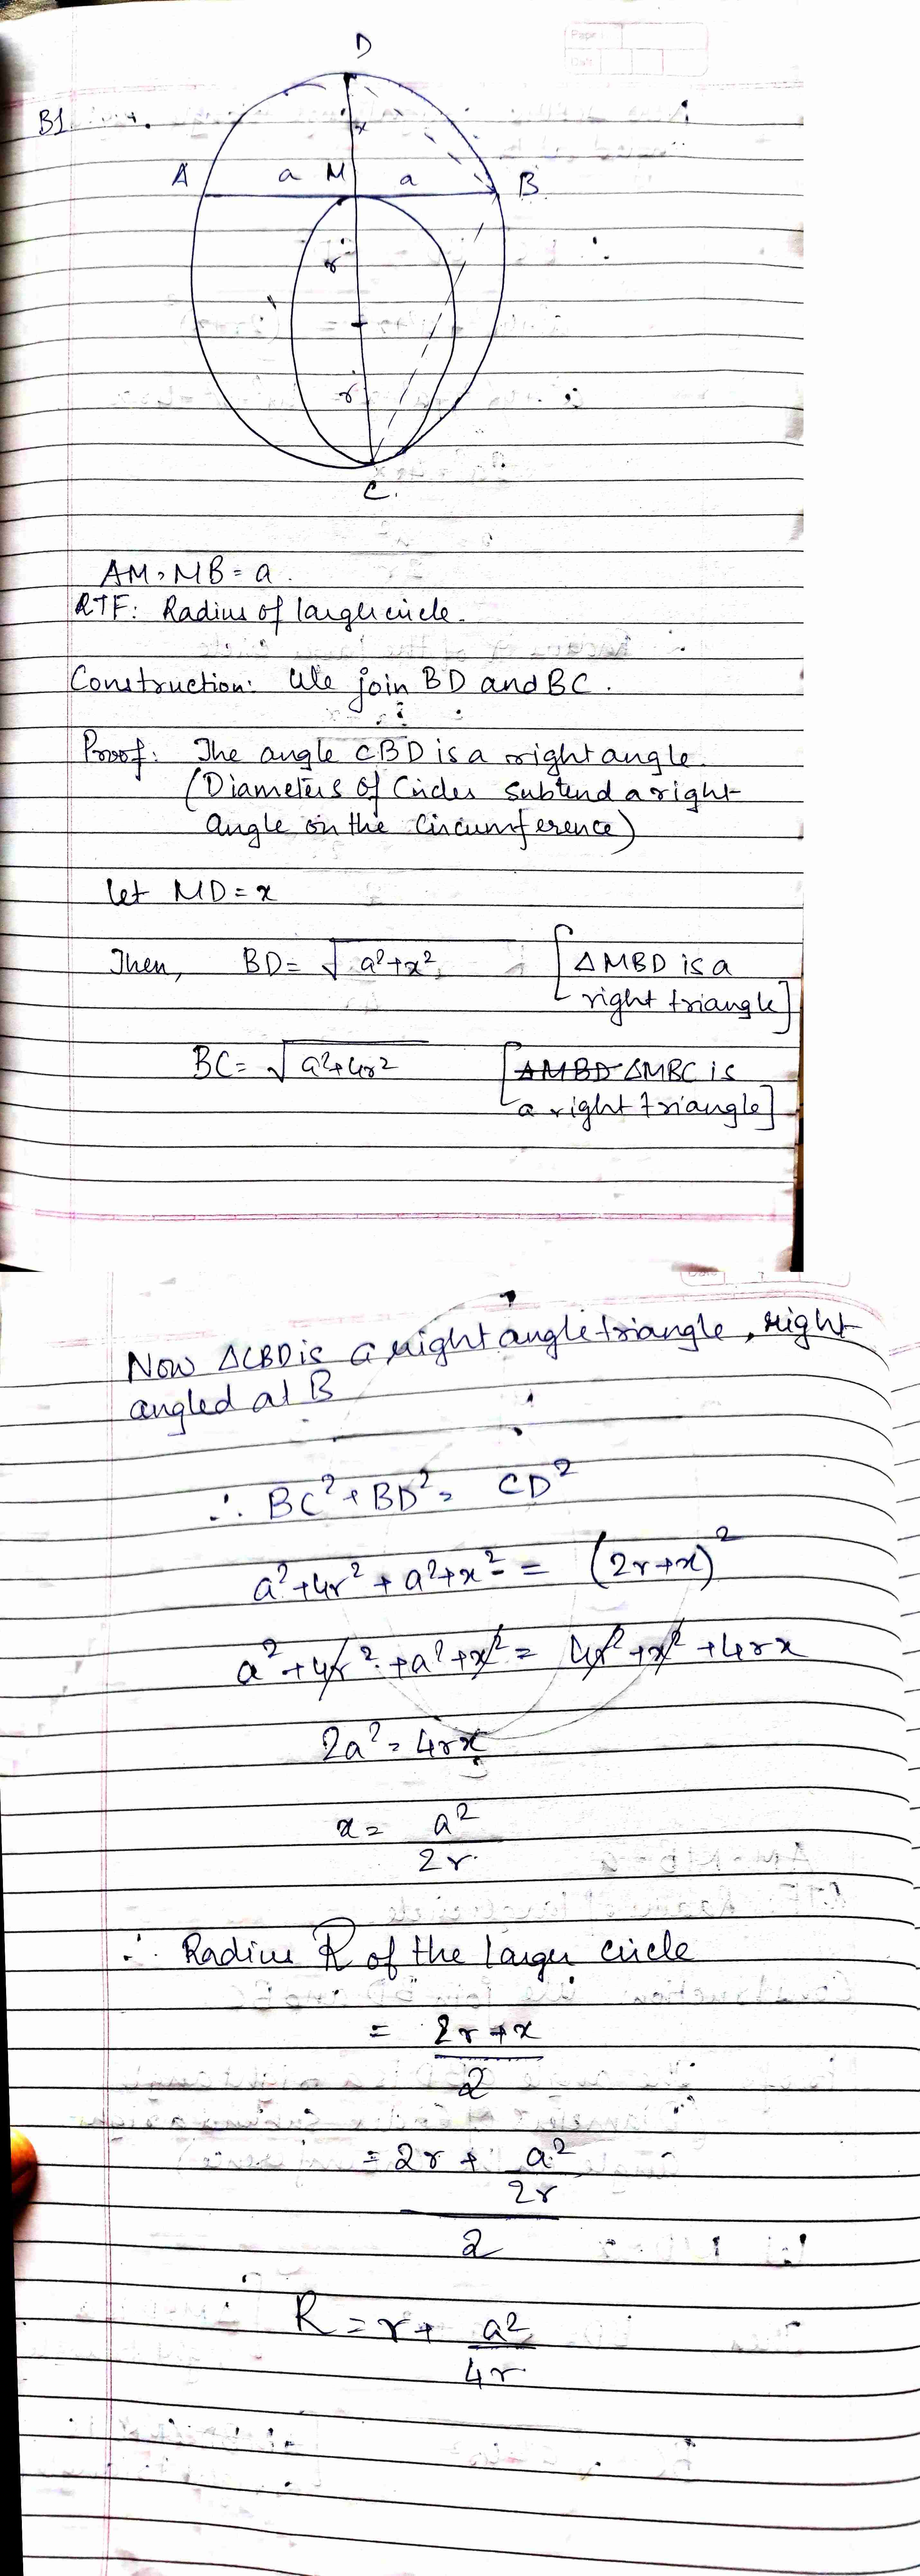 D
B1.
x
A a M a B
r
r
C.
AM = MB = a.
RTF: Radius of larger circle.
Construction: We join BD and BC.
Proof: The angle CBD is a right angle.
(Diameters of Circles subtend a right
angle on the circumference)
let MD = x
Then, BD = √a²+x² [ΔMBD is a
right triangle]
BC = √a²+4r² [ΔMBD ΔMBC is
a right triangle]
Now ΔCBD is a right angle triangle, right
angled at B
∴ BC² + BD² = CD²
a²+4r² + a²+x² = (2r+x)²
a²+4r²+a²+x² = 4r²+x²+4rx
2a² = 4rx
x = a²
2r
∴ Radius R of the larger circle
= 2r+x
2
= 2r + a²
2r
2
R = r + a²
4r